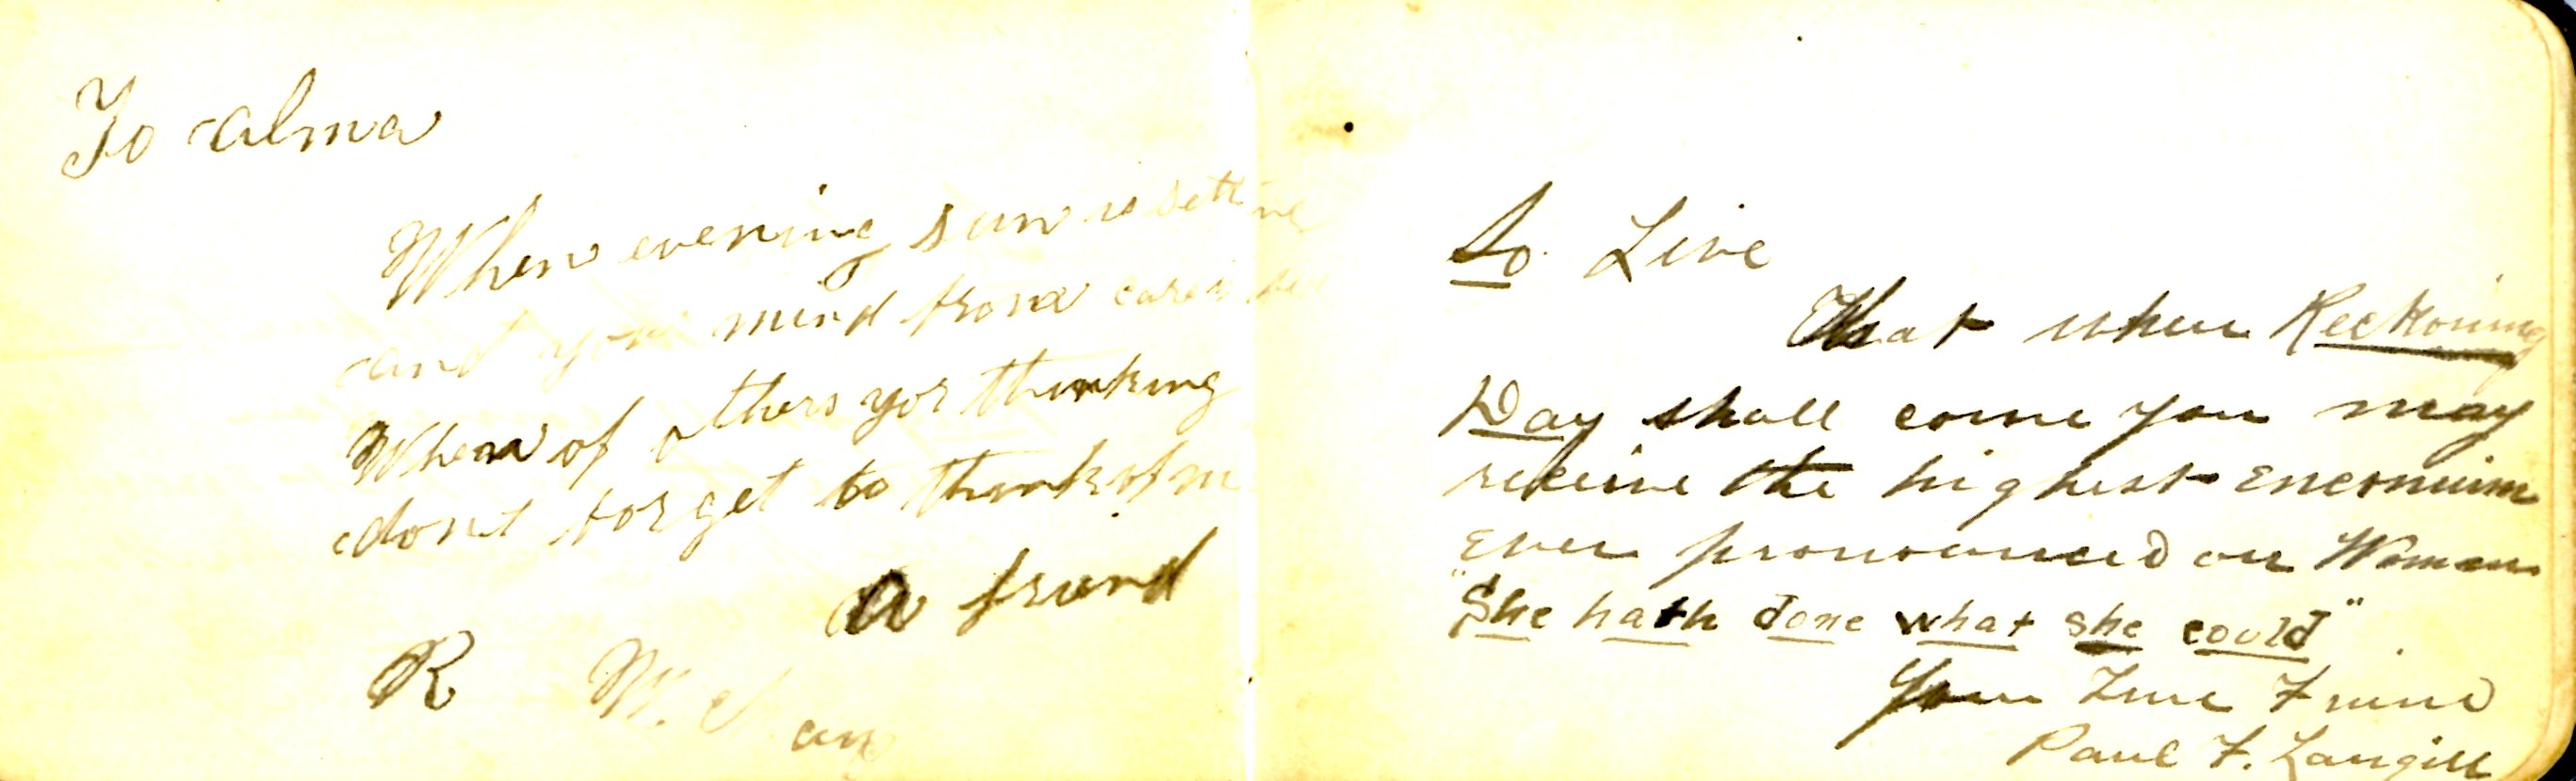 To alma
When evening sun is setting
and your mind from care is
When of others yor thinking
dont forget to think of m
A friend
R
So Live
That when Reckoning
Day shall come you may
receive the highest encomium
ever pronounced on Woman
"She hath done what she could"
Your True Friend
Paul F. Langill